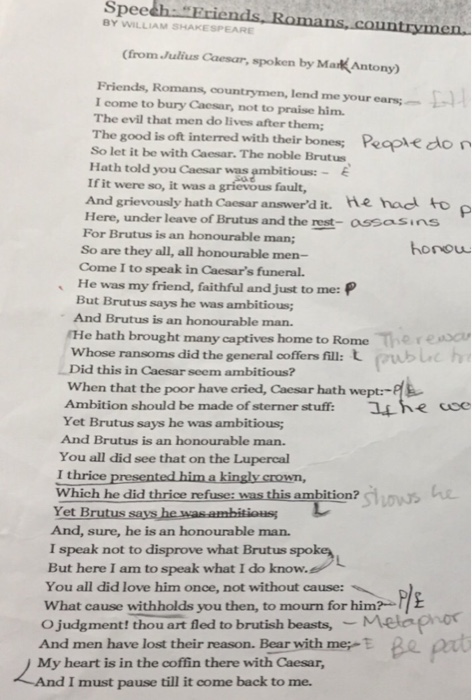 Speech: "Friends, Romans, countrymen,
BY WILLIAM SHAKESPEARE
(from Julius Caesar, spoken by Mark Antony)
Friends, Romans, countrymen, lend me your ears;
I come to bury Caesar, not to praise him.
The evil that men do lives after them;
The good is oft interred with their bones; People do n
So let it be with Caesar. The noble Brutus
Hath told you Caesar was ambitious: - E
If it were so, it was a grievous fault,
And grievously hath Caesar answer'd it. He had to p
Here, under leave of Brutus and the rest- assasins
For Brutus is an honourable man; honou
So are they all, all honourable men–
Come I to speak in Caesar's funeral.
He was my friend, faithful and just to me: P
But Brutus says he was ambitious;
And Brutus is an honourable man.
He hath brought many captives home to Rome The rewar
Whose ransoms did the general coffers fill: L public
Did this in Caesar seem ambitious?
When that the poor have cried, Caesar hath wept:- P/E
Ambition should be made of sterner stuff: If he
Yet Brutus says he was ambitious;
And Brutus is an honourable man.
You all did see that on the Lupercal
I thrice presented him a kingly crown,
Which he did thrice refuse: was this ambition? shows he
Yet Brutus says he was ambitious; L
And, sure, he is an honourable man.
I speak not to disprove what Brutus spoke,
But here I am to speak what I do know. L
You all did love him once, not without cause:
What cause withholds you then, to mourn for him? P/E
O judgment! thou art fled to brutish beasts, - Metaphor
And men have lost their reason. Bear with me; - E Be pat
My heart is in the coffin there with Caesar,
And I must pause till it come back to me.